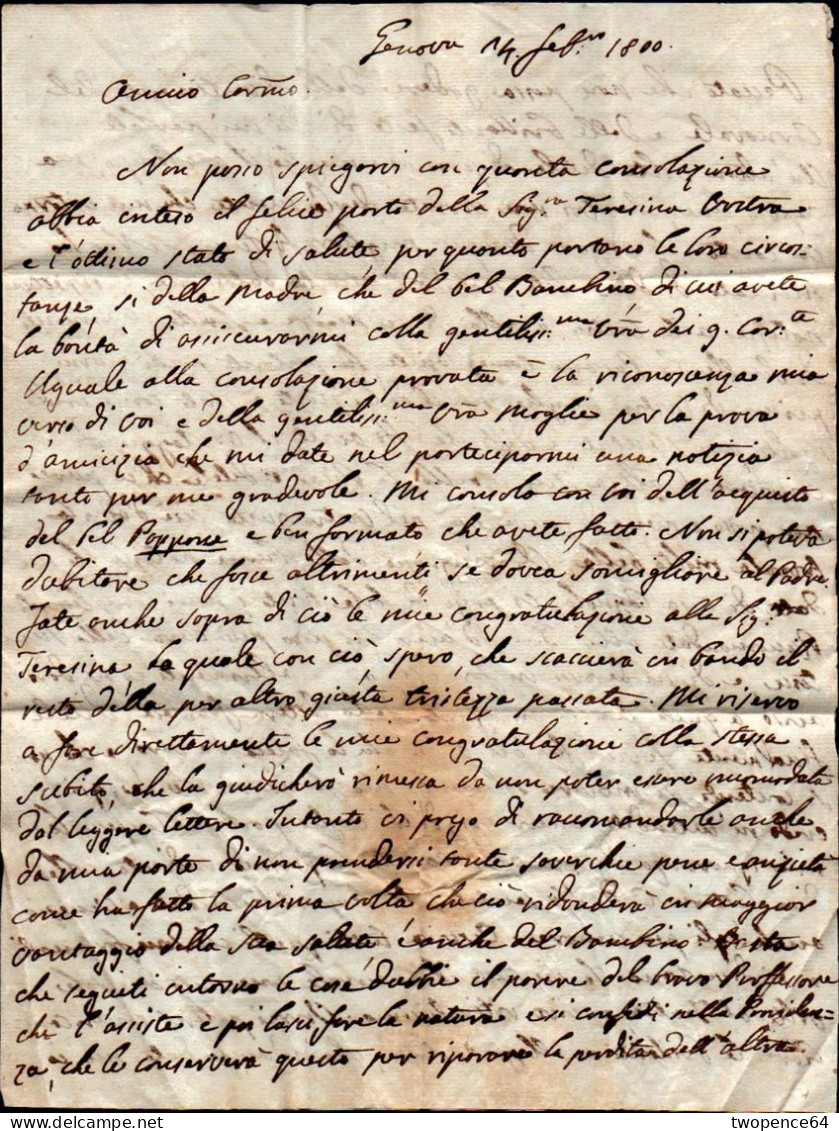 Genova 14. feb:ro 1800.
Amico Carmo.
Non posso spiegarvi con quanta consolazione
abbia inteso il felice parto della Sig.ra Teresina Vostra
e l'ottimo stato di salute, per quanto portano le loro circos:
tanze, si della Madre, che del bel Bambino di cui avete
la bontà di assicurarmi colla gentiliss:ma Vra dei 9. Cor.te
Uguale alla consolazione provata è la riconoscenza mia
verso di voi e della gentiliss:ma Vra Moglie per la prova
d'amicizia che mi date nel parteciparmi una notizia
tanto per me gradevole. Mi consolo con voi dell'acquisto
del bel Poppone e ben formato che avete fatto. Non si poteva
dubitare che fosse altrimenti se dovea somigliare al Padre.
Fate anche sopra di ciò le mie congratulazione alla Sig:ra
Teresina la quale con ciò, spero, che scaccierà in bando il
resto della per altro giusta tristezza passata. Mi riservo
a fare direttamente le mie congratulazione colla stessa
subito, che la giudicherò rimessa da non poter essere incomodata
dal leggere lettere. Intanto vi prego di raccomandarle anche
da mia parte di non prendersi tante soverchie pene e ansietà
come ha fatto la prima volta che ciò ridonderà in maggior
vantaggio della sua salute e anche del Bambino. Basta
che seguiti intorno le cose dubbie il parere del bravo Proffessore
che l'assiste e poi lasci fare la natura e si confidi nella Providen=
za, che le conserverà questo per riparare la perdita dell'altro.
twopence64